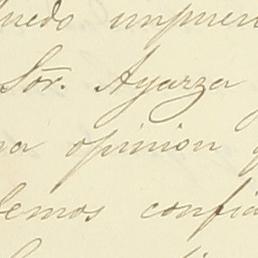 uedo impren
Sör. Ayarza
na opinion
lemos confia